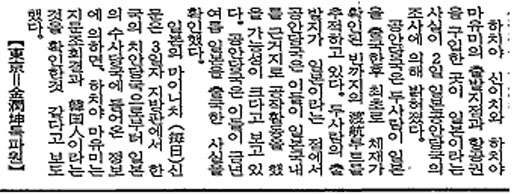 하치야 신이치와 하치야
마유미의 출발지점과 항공권
을 구입한 곳이 일본이라는
사실이 2일 일본공안당국의
조사에 의해 밝혀졌다.
공안당국은 두사람이 일본
을 출국한후 최초로 체재가
확인된 빈까지의 渡航루트를
추정하고 있다. 두사람의 출
발지가 일본이라는 점에서
공안당국은 이들이 일본국내
를 근거지로 공작활동을 했
을 가능성이 크다고 보고 있
다. 공안당국은 이들이 금년
여름 일본을 출국한 사실을
확인했다.
일본의 마이니치 (每日)신
문은 3일자 지방판에서 한
국의 치안당국으로부터 일본
의 수사당국에 들어온 정보
에 의하면, 하치야 마유미는
지문조회결과 韓國人이라는
것을 확인한것 같다고 보도
했다.
【東京=金潤坤특파원】